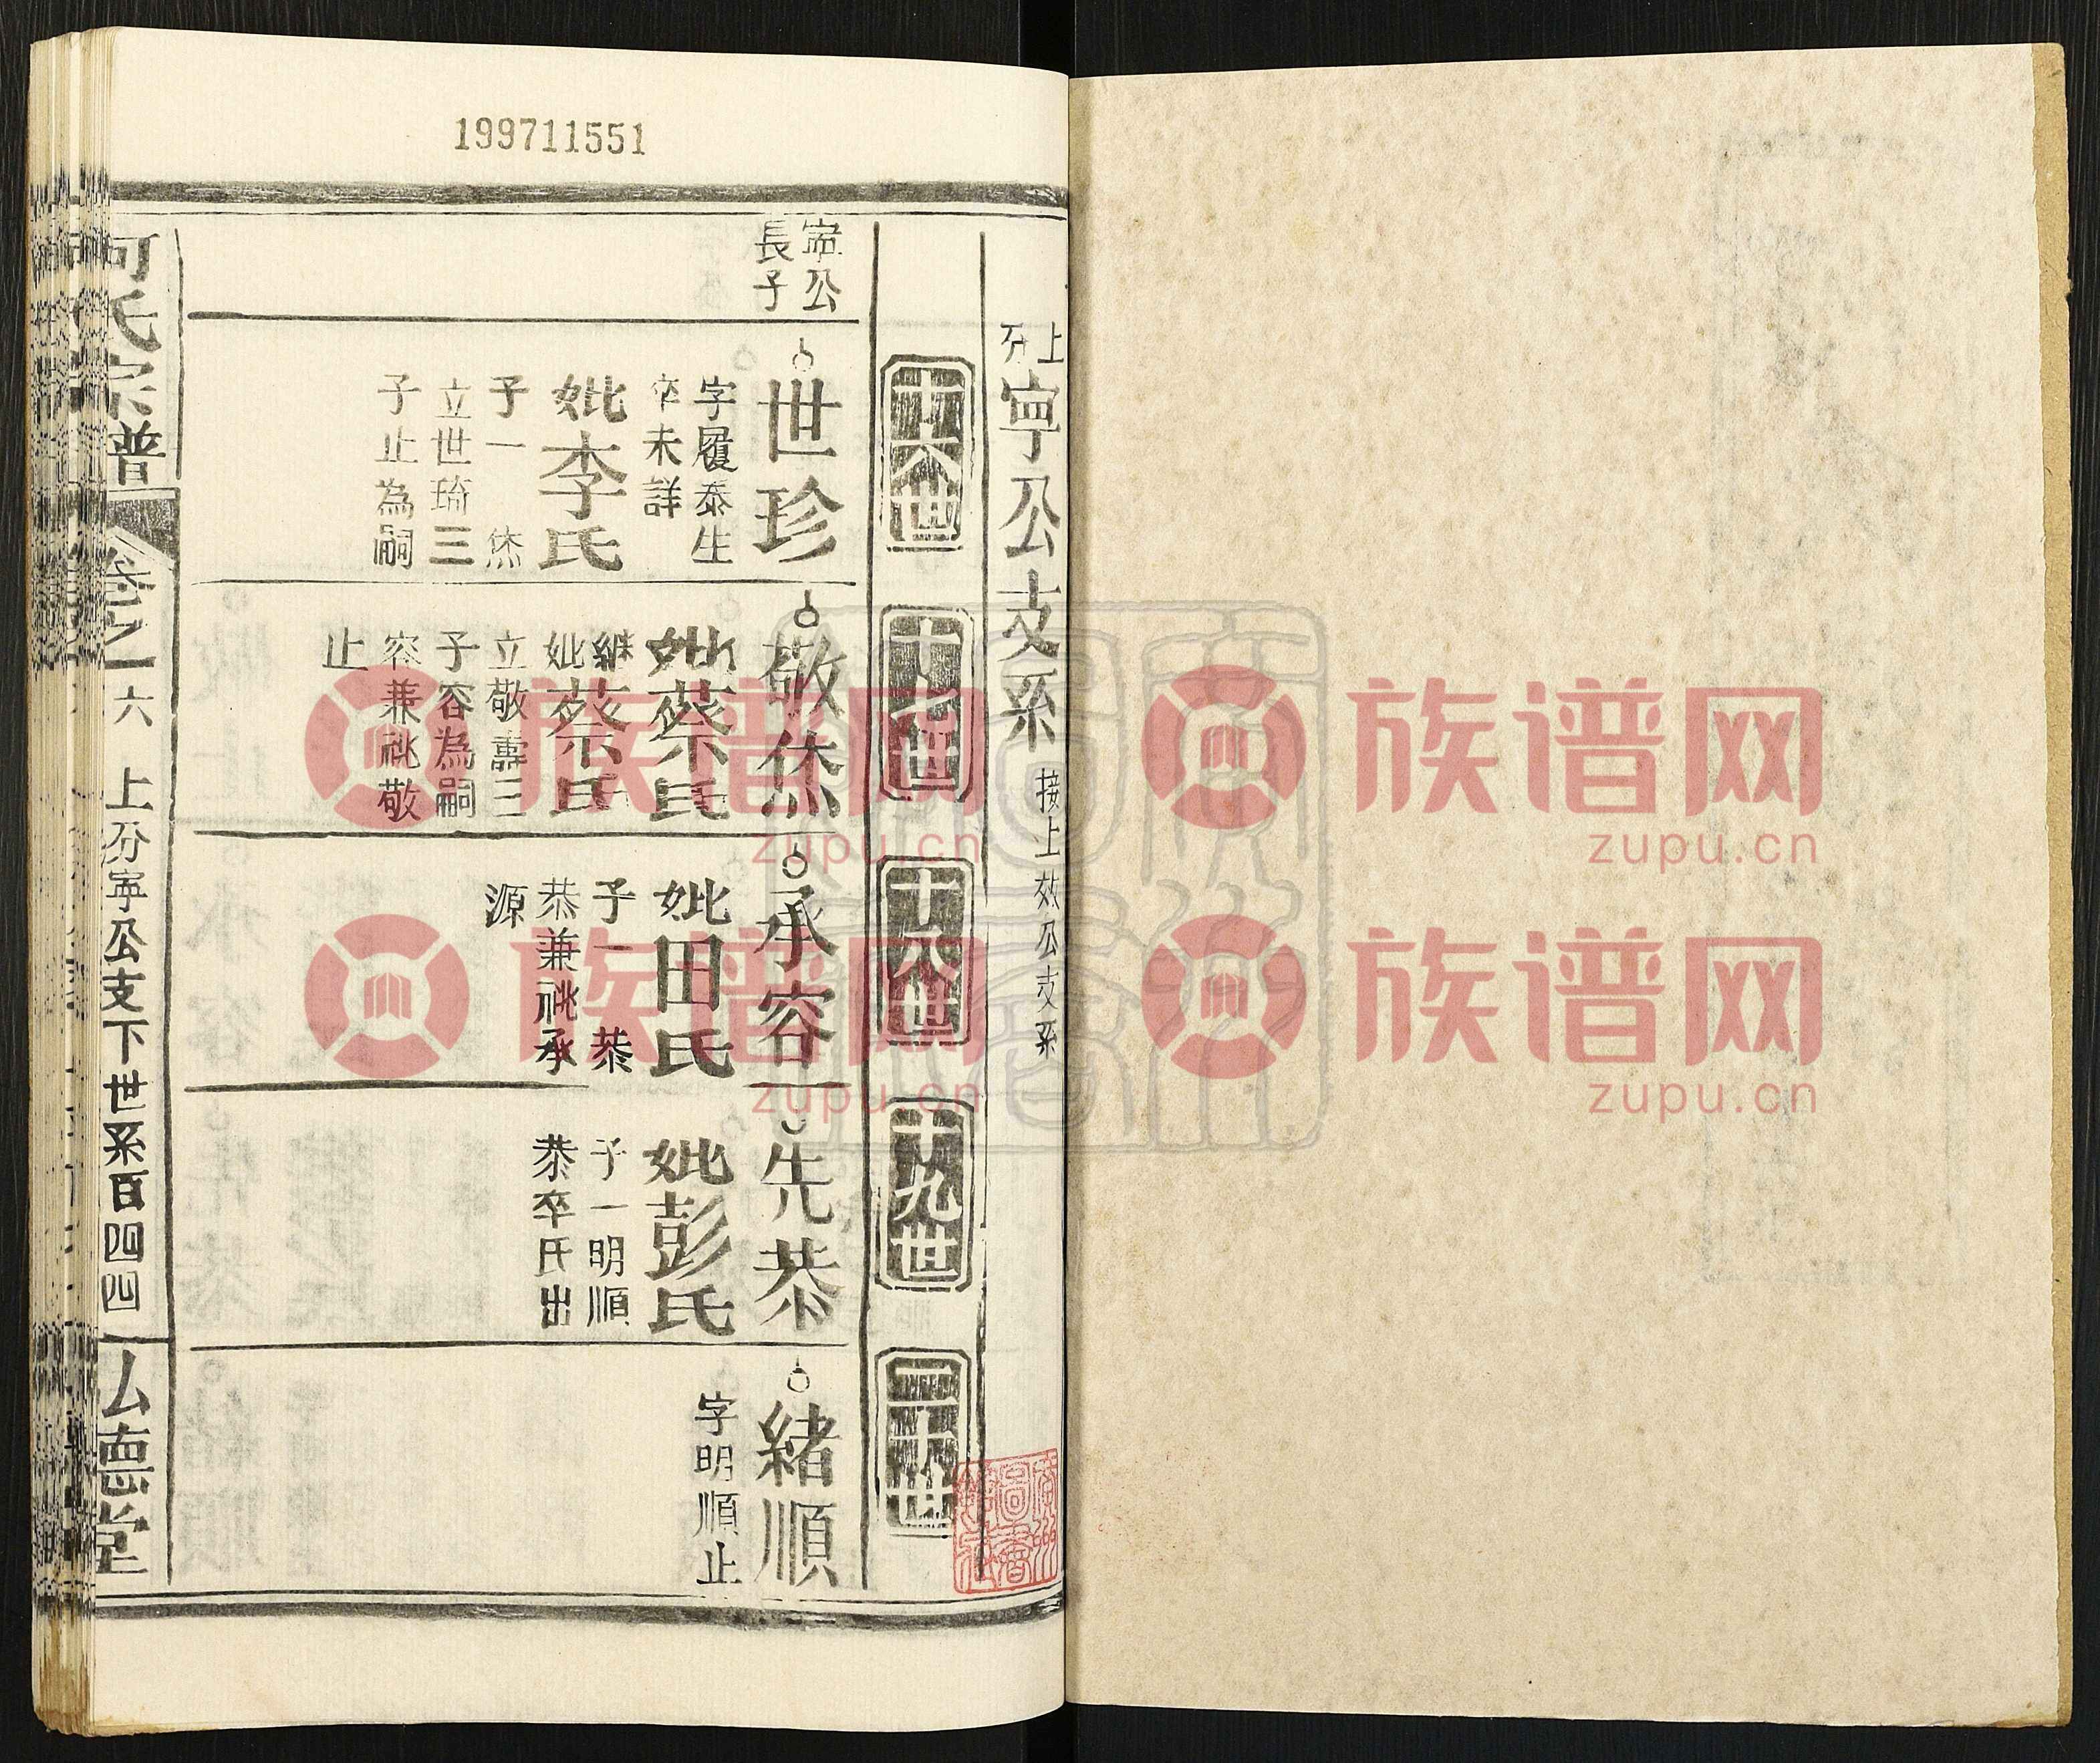 199711551
上分
寧公支系
接上效公支系
十六世
十七世
十八世
十九世
二十世
寧公
長子
世珍
字履泰生
卒未詳
妣李氏
子一 烋
立世琦三
子止為嗣
敬烋
妣蔡氏
繼妣蔡氏
立敬壽三
子容為嗣
容兼祧敬
止
承容
妣田氏
子一 恭
恭兼祧承
源
先恭
妣彭氏
子一明順
恭卒氏出
緒順
字明順止
何氏宗譜
卷之一六
上分寧公支下世系百四四
弘德堂
族谱网
zupu.cn
族谱网
zupu.cn
族谱网
zupu.cn
族谱网
zupu.cn